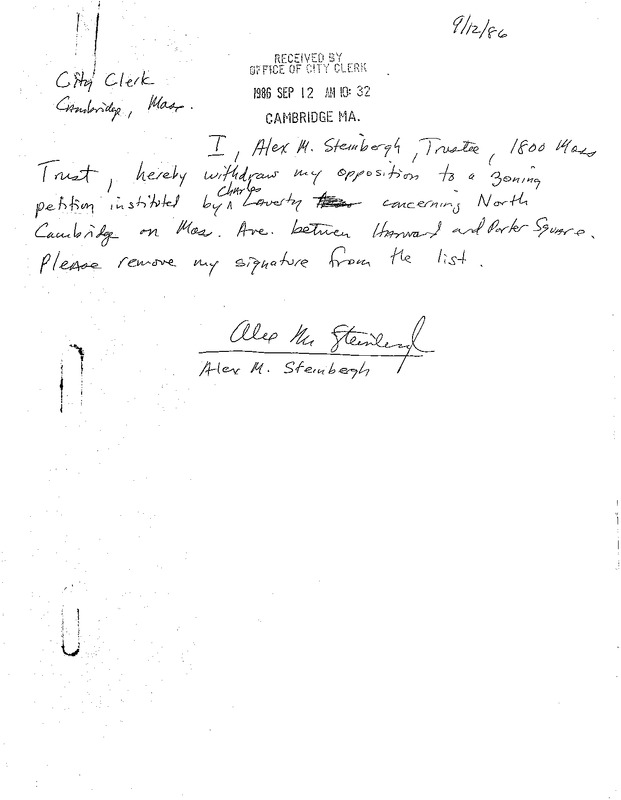 9/12/86
RECEIVED BY
OFFICE OF CITY CLERK
1986 SEP 12 AM 10:32
CAMBRIDGE MA.
City Clerk
Cambridge, Mass.
I, Alex M. Steinbergh, Trustee, 1800 Mass
Trust, hereby withdraw my opposition to a zoning
petition instituted by Charles Laverty concerning North
Cambridge on Mass. Ave. between Harvard and Porter Square.
Please remove my signature from the list.
Alex M. Steinbergh
Alex M. Steinbergh